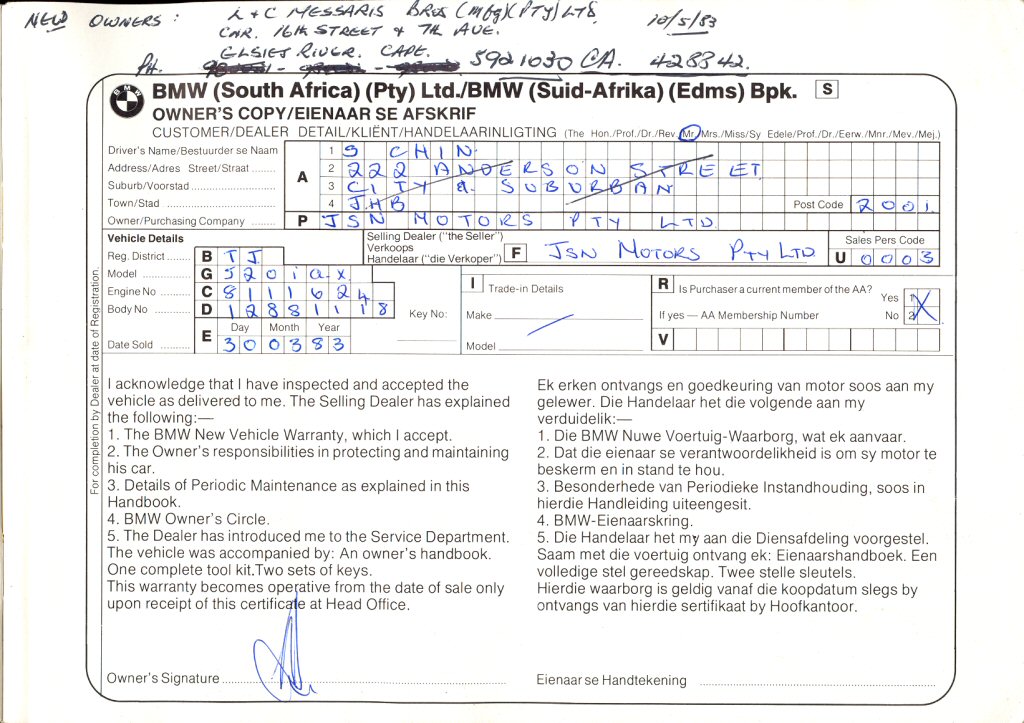 NEW OWNERS: L + C MESSARIS BROS (Mfg)(PTY) LTD. 10/5/83
CNR. 16TH STREET & 7TH AVE.
ELSIES RIVER. CAPE.
PH. 5921030 CA. 428342.
BMW
BMW (South Africa) (Pty) Ltd./BMW (Suid-Afrika) (Edms) Bpk. S
OWNER'S COPY/EIENAAR SE AFSKRIF
CUSTOMER/DEALER DETAIL/KLIËNT/HANDELAARINLIGTING (The Hon./Prof./Dr./Rev./Mr./Mrs./Miss/Sy Edele/Prof./Dr./Eerw./Mnr./Mev./Mej.)
Driver's Name/Bestuurder se Naam A 1 S CHIN
Address/Adres Street/Straat ........ 2 222 ANDERSON STREET
Suburb/Voorstad ........ 3 CITY & SUBURBAN
Town/Stad ........ 4 JHB Post Code 2001
Owner/Purchasing Company ....... P JSN MOTORS PTY LTD
Vehicle Details
Reg. District ........ B TJ
Model ........ G 520iax
Engine No .......... C 8111624
Body No .......... D 12881118
Day Month Year
Date Sold .......... E 30 03 83
Selling Dealer ("the Seller")
Verkoops
Handelaar ("die Verkoper") F JSN MOTORS PTY LTD
Sales Pers Code
U 0003
Key No:
I Trade-in Details
Make
Model
R Is Purchaser a current member of the AA?
Yes 1
If yes — AA Membership Number No 2 X
V
For completion by Dealer at date of Registration.
I acknowledge that I have inspected and accepted the
vehicle as delivered to me. The Selling Dealer has explained
the following:—
1. The BMW New Vehicle Warranty, which I accept.
2. The Owner's responsibilities in protecting and maintaining
his car.
3. Details of Periodic Maintenance as explained in this
Handbook.
4. BMW Owner's Circle.
5. The Dealer has introduced me to the Service Department.
The vehicle was accompanied by: An owner's handbook.
One complete tool kit. Two sets of keys.
This warranty becomes operative from the date of sale only
upon receipt of this certificate at Head Office.
Owner's Signature
Ek erken ontvangs en goedkeuring van motor soos aan my
gelewer. Die Handelaar het die volgende aan my
verduidelik:—
1. Die BMW Nuwe Voertuig-Waarborg, wat ek aanvaar.
2. Dat die eienaar se verantwoordelikheid is om sy motor te
beskerm en in stand te hou.
3. Besonderhede van Periodieke Instandhouding, soos in
hierdie Handleiding uiteengesit.
4. BMW-Eienaarskring.
5. Die Handelaar het my aan die Diensafdeling voorgestel.
Saam met die voertuig ontvang ek: Eienaarshandboek. Een
volledige stel gereedskap. Twee stelle sleutels.
Hierdie waarborg is geldig vanaf die koopdatum slegs by
ontvangs van hierdie sertifikaat by Hoofkantoor.
Eienaar se Handtekening